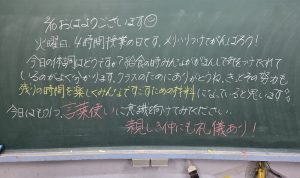 おはようございます
火曜日、4時間授業の日です。メリハリつけてがんばろう！
今日の体調はどうですか？給食の時みんながが
いるのがよく分かります。クラスのためにありがとうね。きっとその努力も
残りの時間を楽しくみんなですごすための材料になっていると思います。
今日はもう1つ、言葉使いに意識を向けてみてください。
親しき仲にも礼儀あり！